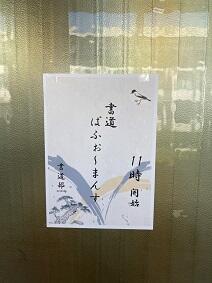 書道
ぱふぉ～まんす
11時開始
書道部